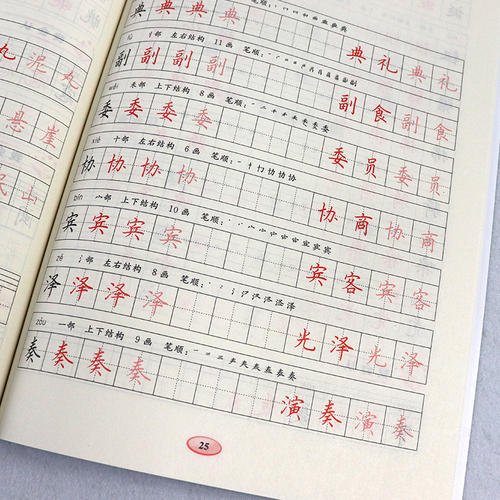 典 典 典 典 典 礼 典 礼
fù 刂部 左右结构 11画 笔顺:
副 副 副 副 副 食 副 食
wěi 禾部 上下结构 8画 笔顺:
委 委 委 委 委 员 委 员
xié 十部 左右结构 6画 笔顺:
协 协 协 协 协 商 协 商
bīn 宀部 上下结构 10画 笔顺:
宾 宾 宾 宾 宾 客 宾 客
zé 氵部 左右结构 8画 笔顺:
泽 泽 泽 泽 光 泽 光 泽
zòu 一部 上下结构 9画 笔顺:
奏 奏 奏 奏 演 奏 演 奏
25
泥 丸
悬 崖
民 山